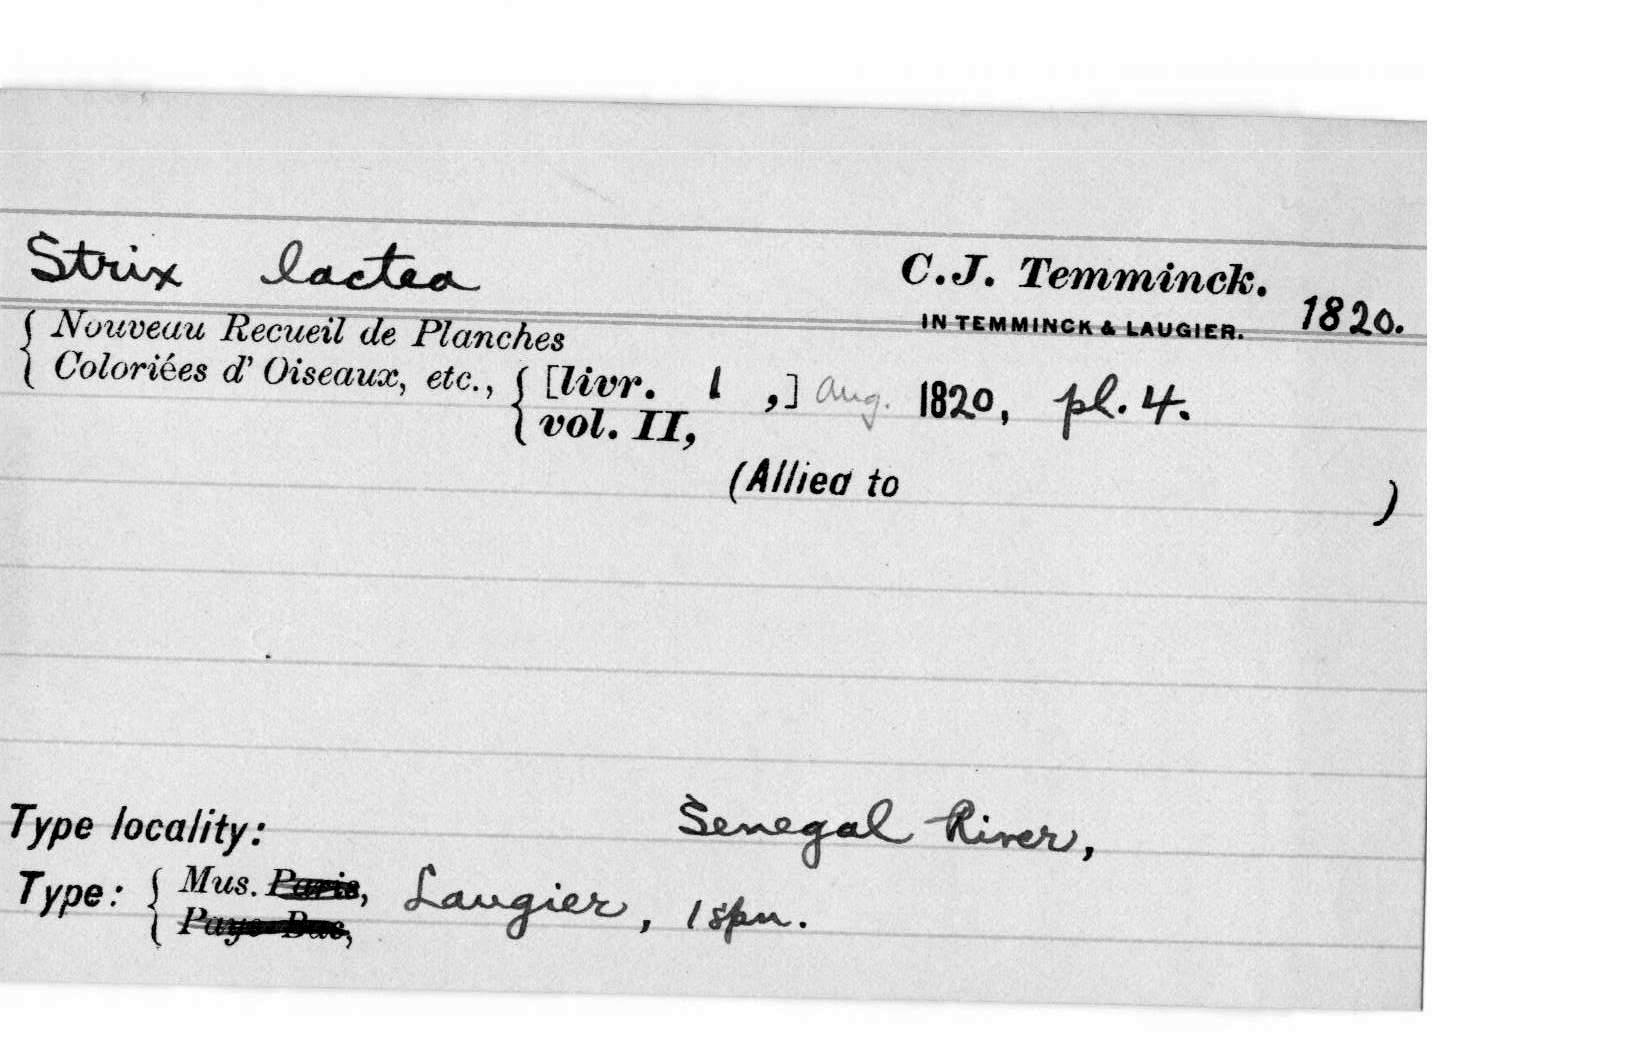 Strix lactea C. J. Temminck.
IN TEMMINCK & LAUGIER. 1820.
{ Nouveau Recueil de Planches
{ Coloriées d' Oiseaux, etc., { [livr. 1 ,] Aug. 1820, pl. 4.
{ vol. II,
(Allied to )
Type locality: Senegal River,
Type: { Mus. Paris, Laugier, 1 spn.
{ Pays-Bas,